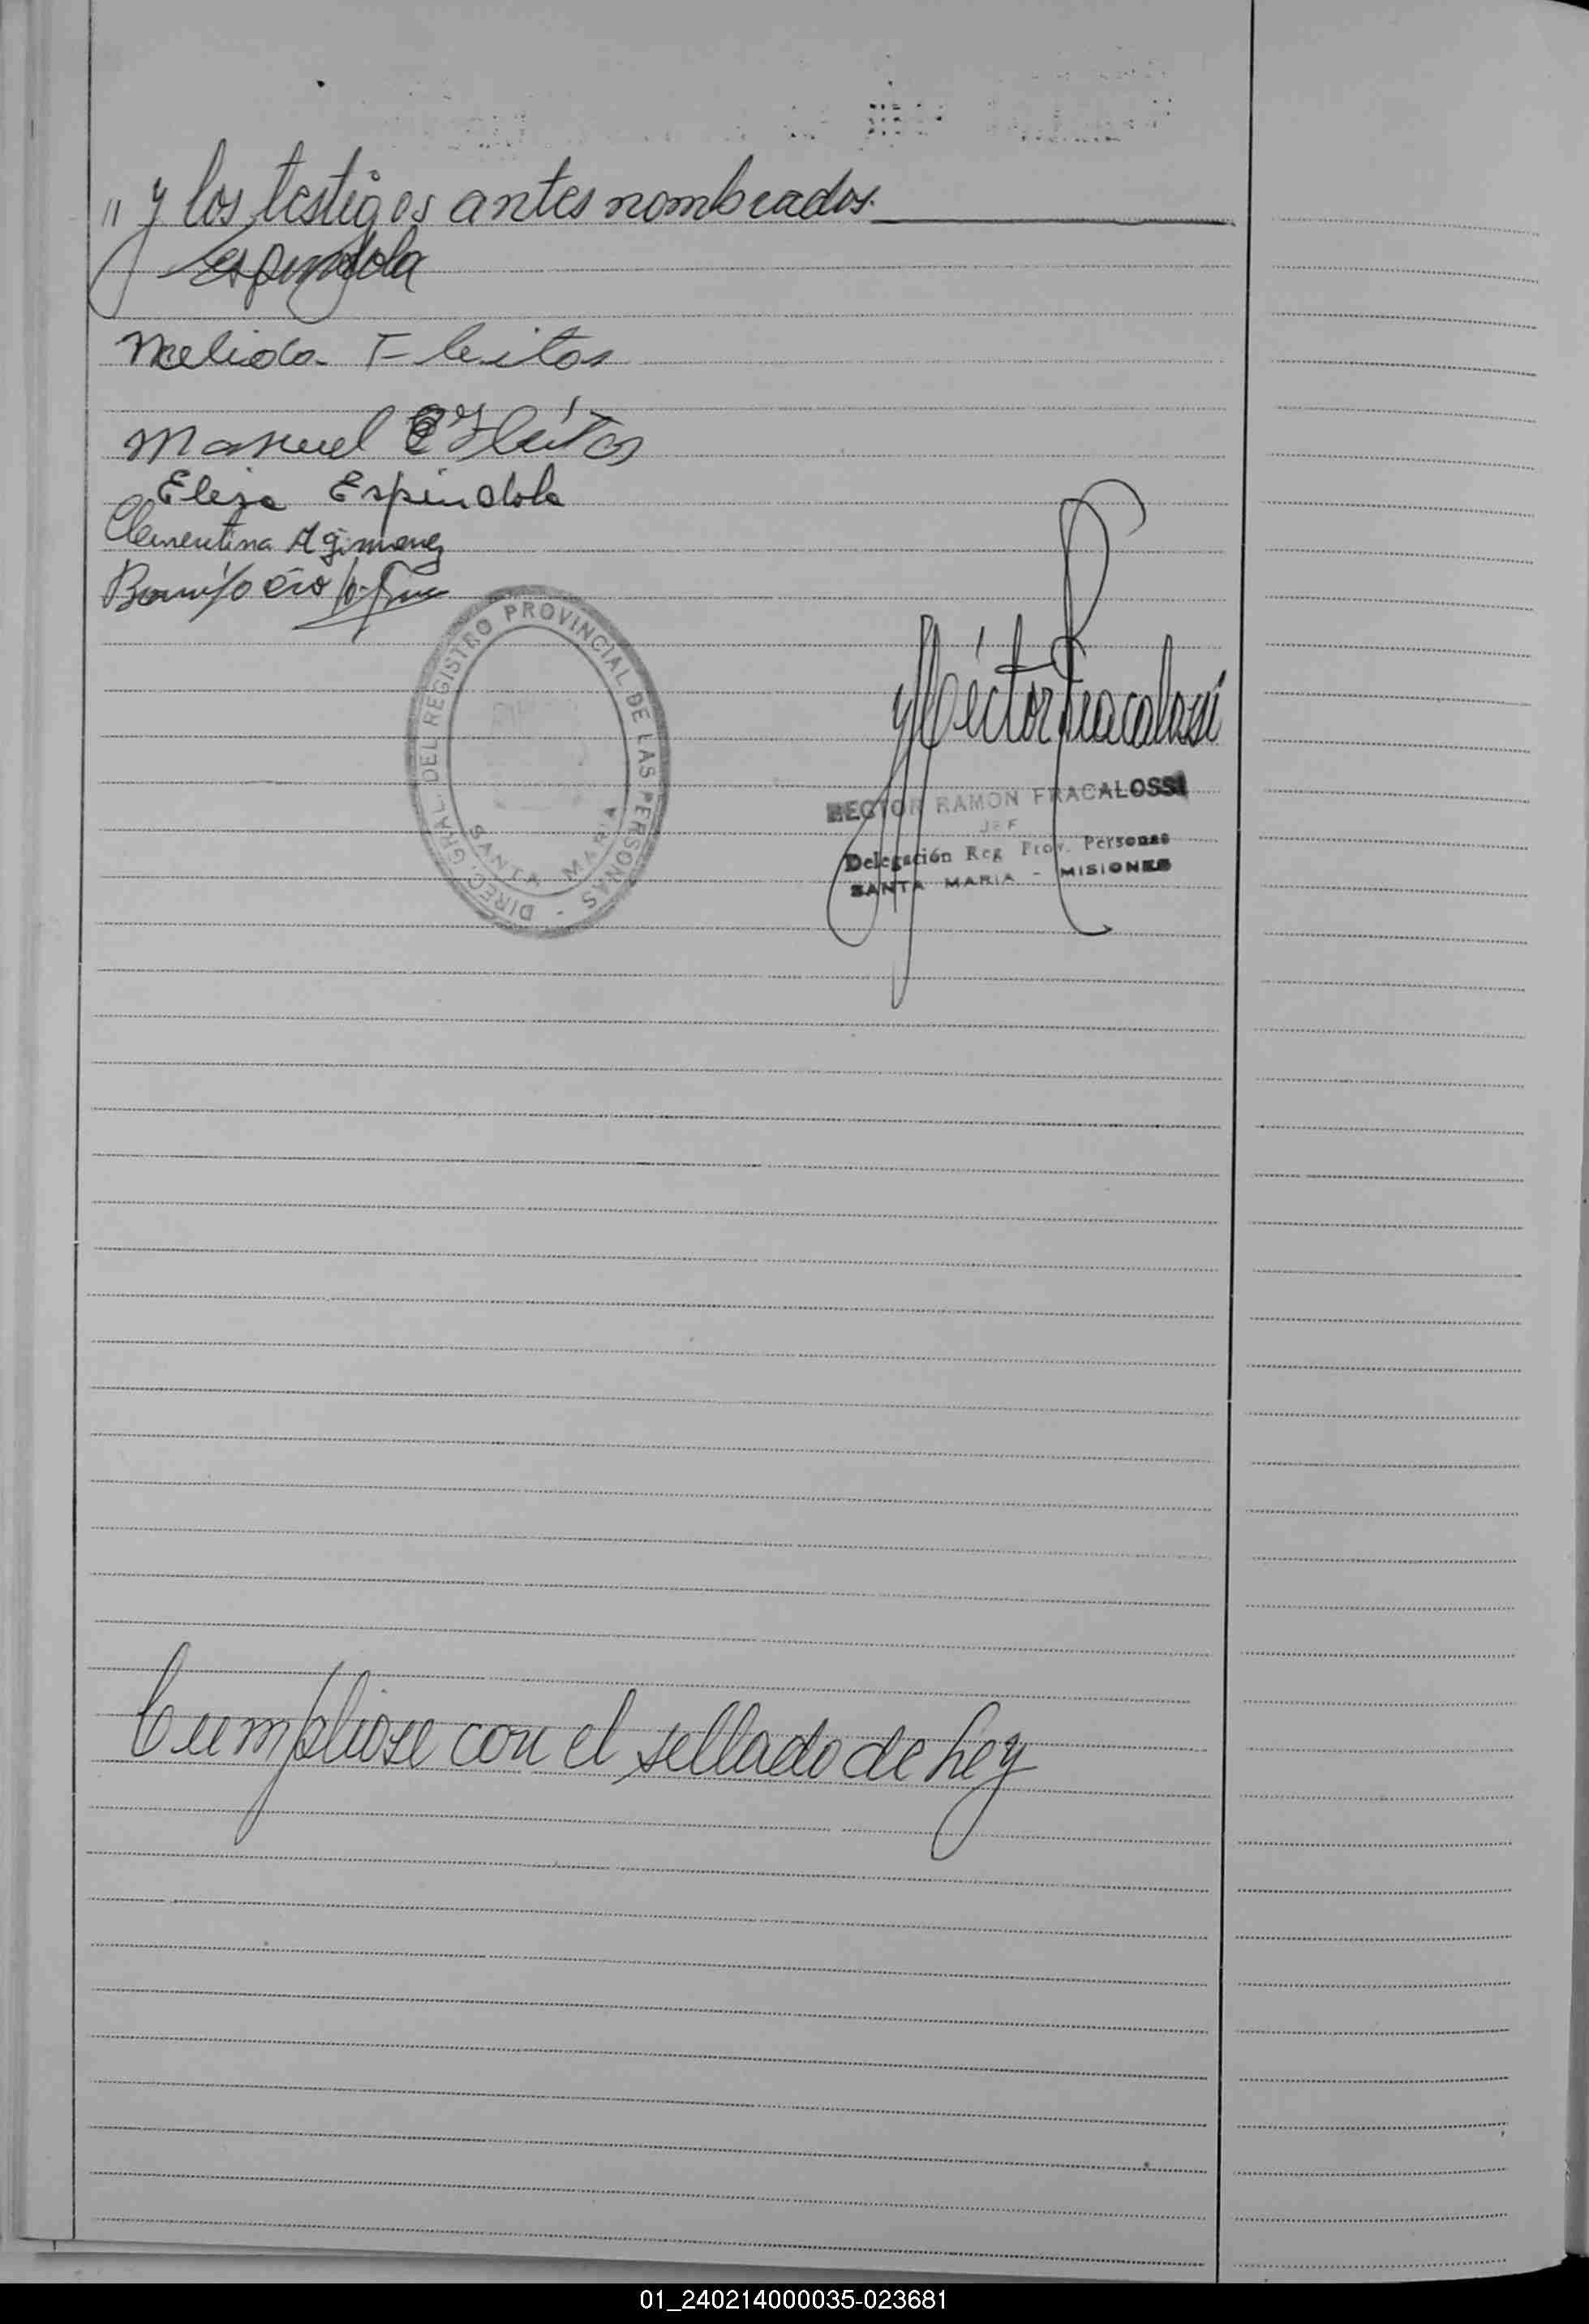 " y los testigos antes nombrados.
Espindola
Melida Fleitas
Manuel Fleitas
Elisa Espindola
Clementina A gimenez
Bonifacio
DIREC. GRAL. DEL REGISTRO PROVINCIAL DE LAS PERSONAS -
SANTA MARIA
Héctor Fracalossi
HECTOR RAMON FRACALOSSI
JEF
Delegación Reg Prov. Personas
SANTA MARIA - MISIONES
Cumpliose con el sellado de Ley
01_240214000035-023681